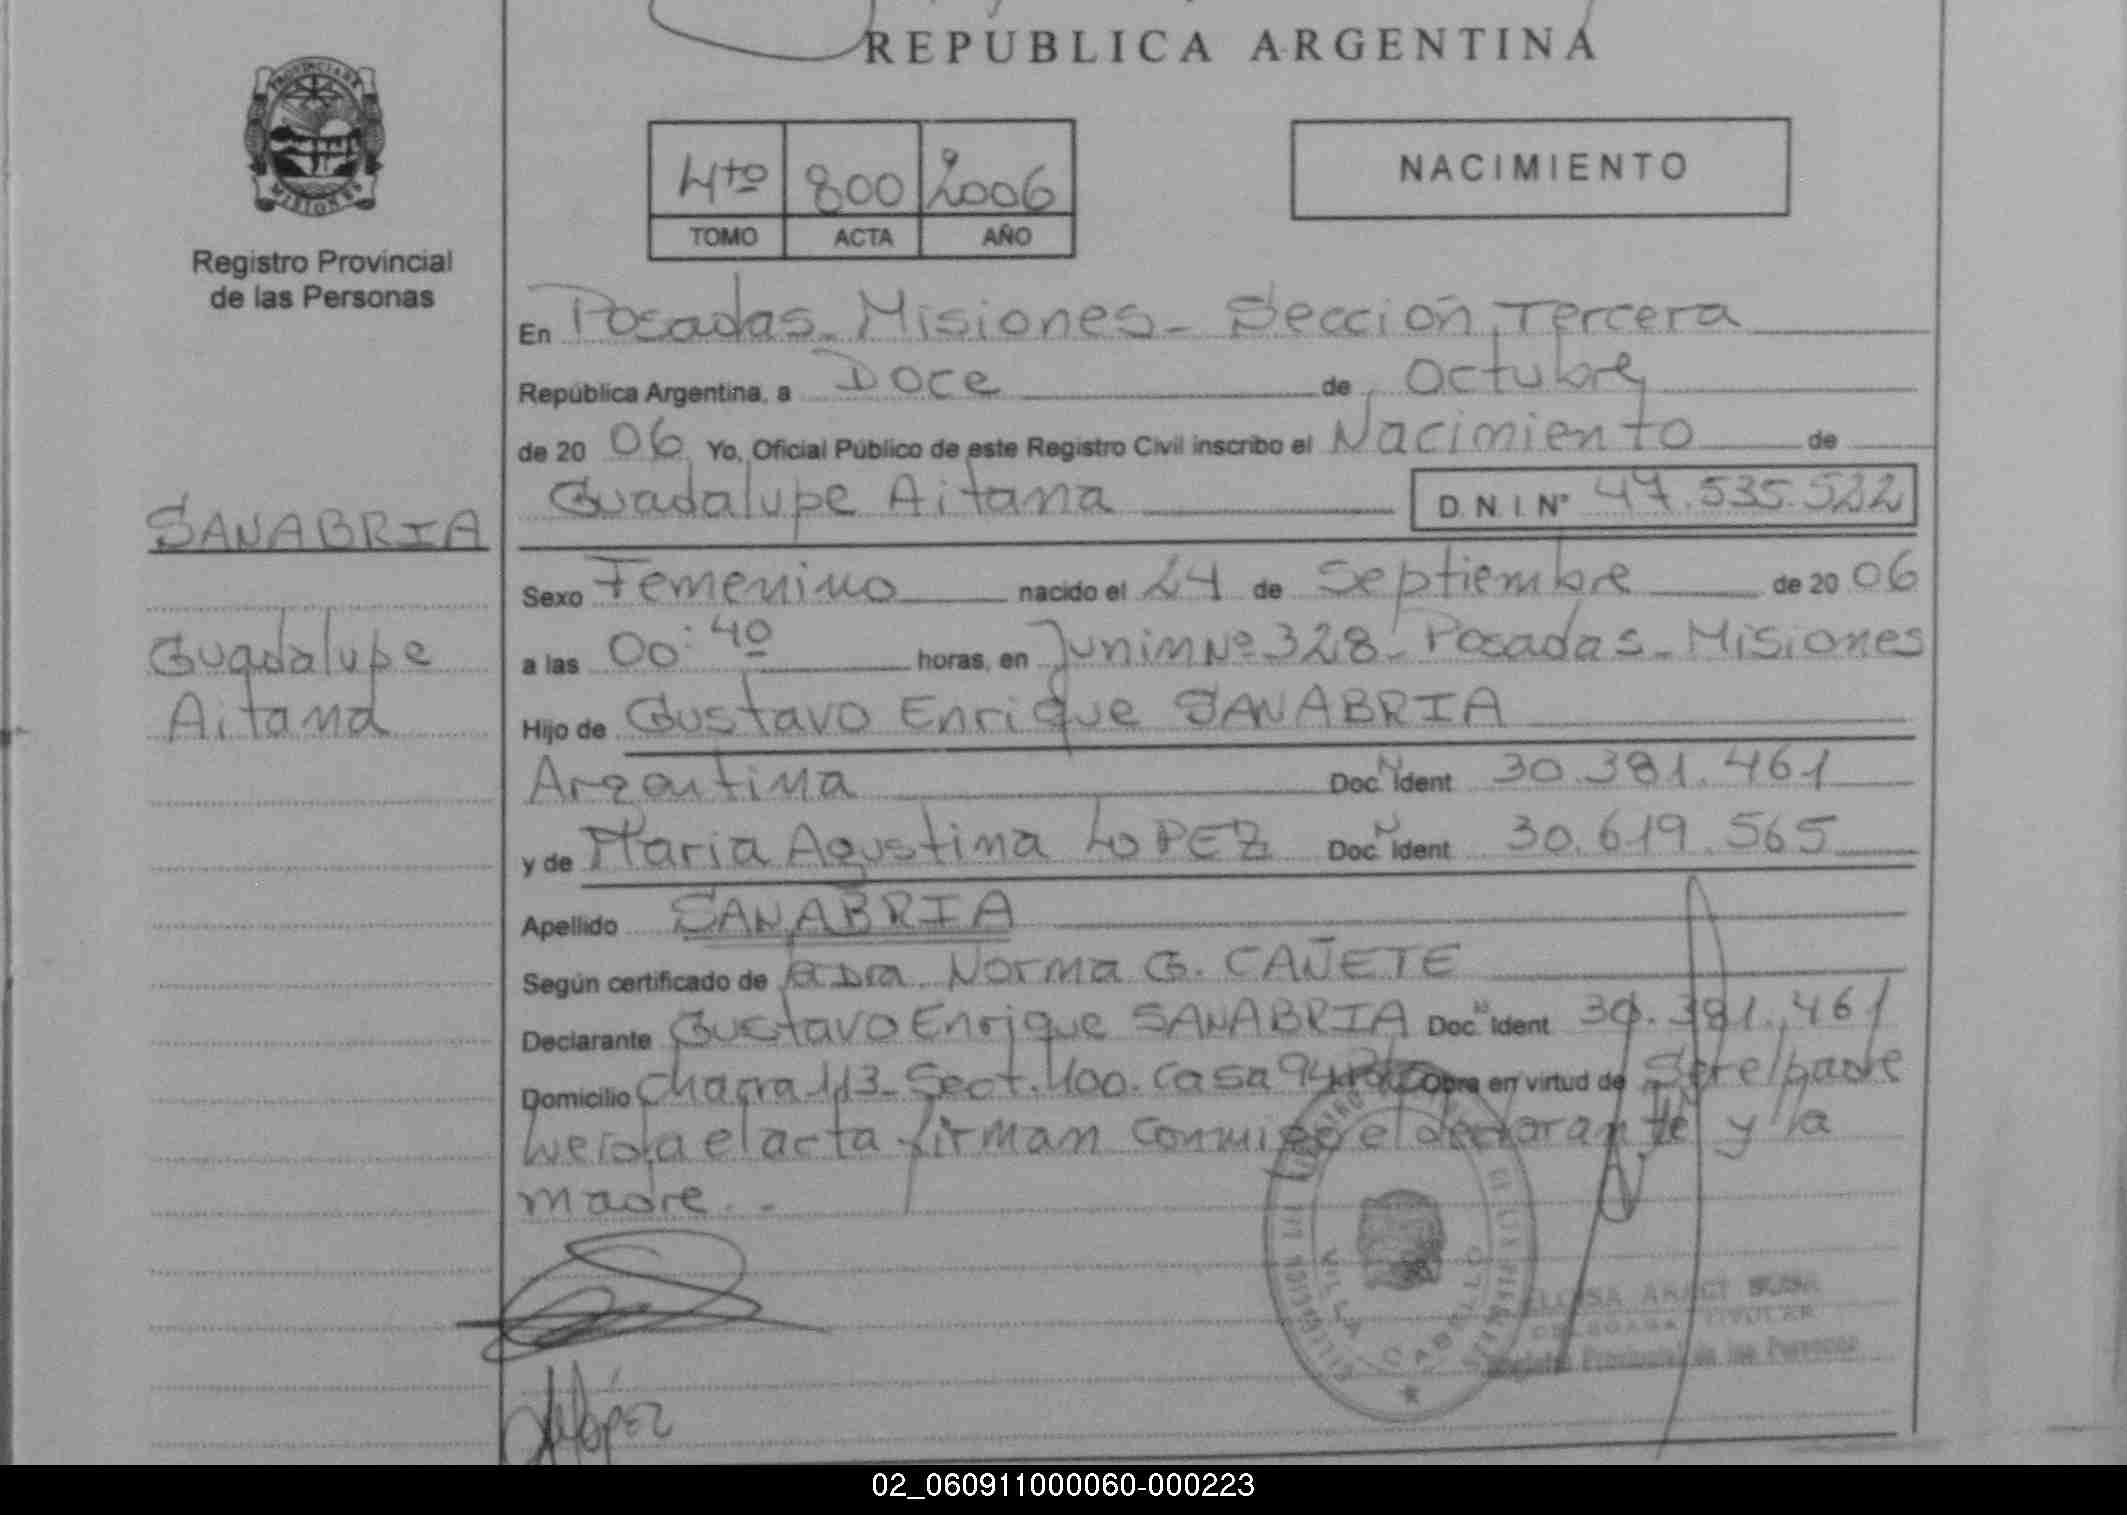 REPUBLICA ARGENTINA
PROVINCIA DE
MISIONES
Registro Provincial
de las Personas
4to 800 2006
TOMO ACTA AÑO
NACIMIENTO
En Posadas - Misiones - Sección Tercera
República Argentina, a Doce de Octubre
de 20 06 Yo, Oficial Público de este Registro Civil inscribo el Nacimiento de
Guadalupe Aitana D.N.I Nº 47.535.522
SANABRIA
Guadalupe
Aitana
Sexo Femenino nacido el 24 de Septiembre de 20 06
a las 00:40 horas, en Junin Nº 328 - Posadas - Misiones
Hijo de Gustavo Enrique SANABRIA
Argentina Doc. Ident 30.381.461
y de Maria Agustina LOPEZ Doc. Ident 30.619.565
Apellido SANABRIA
Según certificado de la Dra. Norma G. CAÑETE
Declarante Gustavo Enrique SANABRIA Doc. Ident 30.381.461
Domicilio Chacra 113 - Sect. 400. Casa 94 Obra en virtud de Ser el padre
Leida el acta firman conmigo el declarante y la
madre. -
VILLA CABELLO
TITULAR
Registro Provincial de las Personas
López
02_060911000060-000223